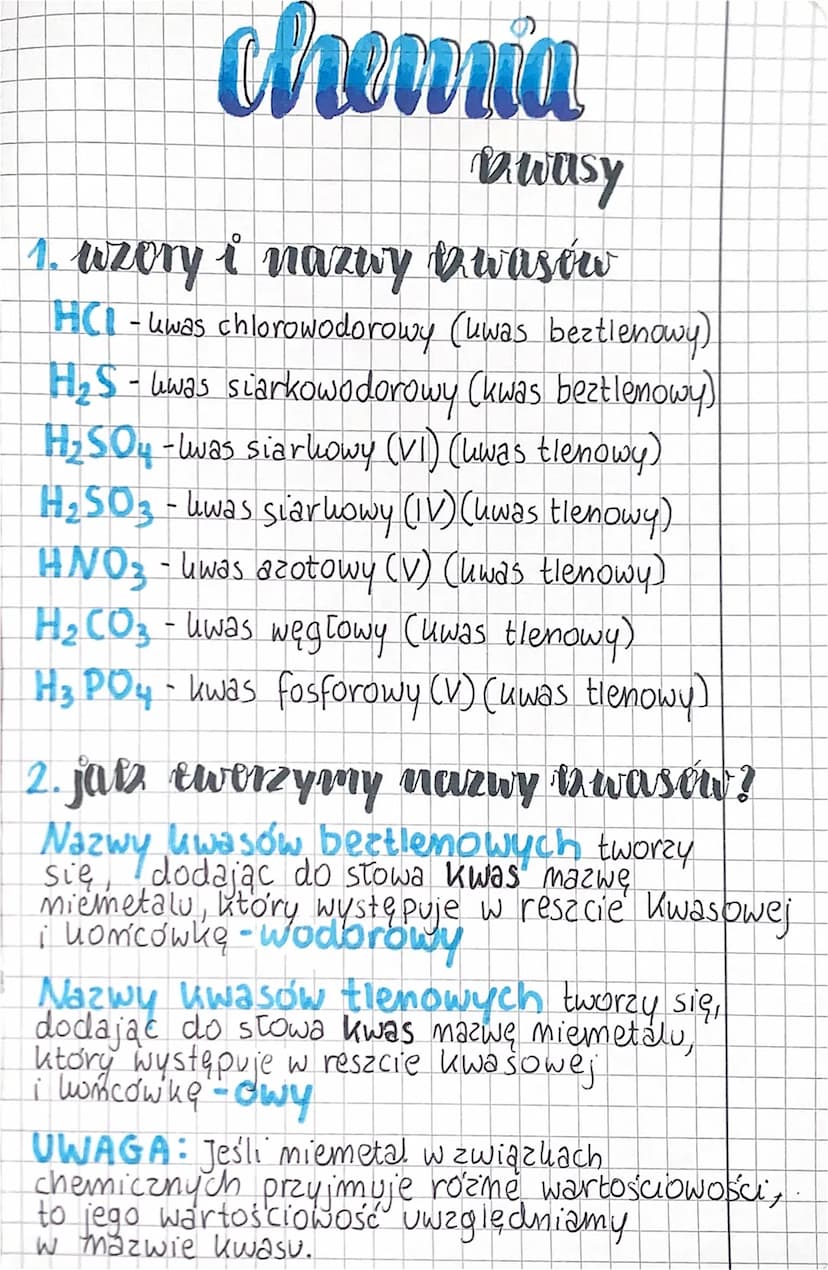 chemia
kwasy
1. wzory i nazwy kwasów
HCl - kwas chlorowodorowy (kwas beztlenowy)
H₂S - kwas siarkowodorowy (kwas beztlenowy)
H₂SO₄ - kwas siarkowy (VI) (kwas tlenowy)
H₂SO₃ - kwas siarkowy (IV) (kwas tlenowy)
HNO₃ - kwas azotowy (V) (kwas tlenowy)
H₂CO₃ - kwas węglowy (kwas tlenowy)
H₃PO₄ - kwas fosforowy (V) (kwas tlenowy)
2. jak tworzymy nazwy kwasów?
Nazwy kwasów beztlenowych tworzy
się, dodając do słowa kwas nazwę
niemetalu, który występuje w reszcie kwasowej
i końcówkę -wodorowy
Nazwy kwasów tlenowych tworzy się,
dodając do słowa kwas nazwę niemetalu,
który występuje w reszcie kwasowej
i końcówkę -owy
UWAGA: Jeśli niemetal w związkach
chemicznych przyjmuje różne wartościowości,
to jego wartościowość uwzględniamy
w nazwie kwasu.